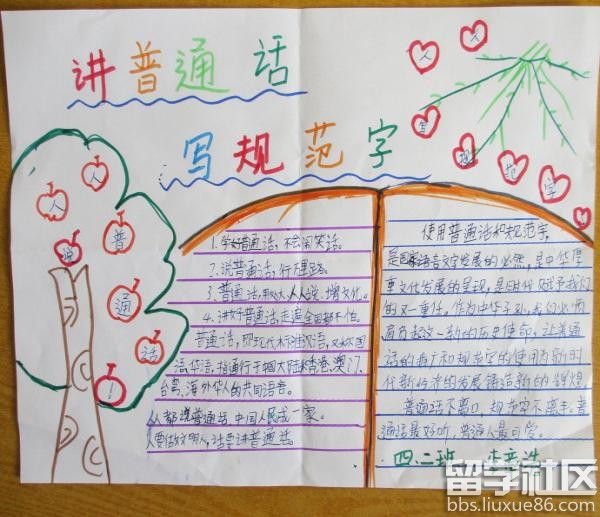 讲普通话
写规范字
人
人
写
规
范
字
人
人
说
普
通
话
！
1.学好普通话，不会闹笑话。
2.说普通话，行万里路。
3.普通话，人人说，增文化。
4.讲好普通话，走遍全国都不怕。
普通话，即现代标准汉语，又
语、华语，指通行于中国大陆和香港、澳门、
台湾、海外华人的共同语言。
人人都说普通话，中国人民成一家。
人要做文明人，话要讲普通话。
使用普通话和规范字，
是国家语言文字发展的必然，是中华厚
重文化发展的呈现，是时代赋予我们
的又一重任。作为中华子孙，我们必需
肩负起这一新的历史使命，让普通
话的推广和规范字的使用为新时
代新经济的发展铸造新的辉煌
普通话不离口，规范字不离手。普
通话最好听，普通人最可爱。
四.二班
留学社区
bbs.liuxue86.com